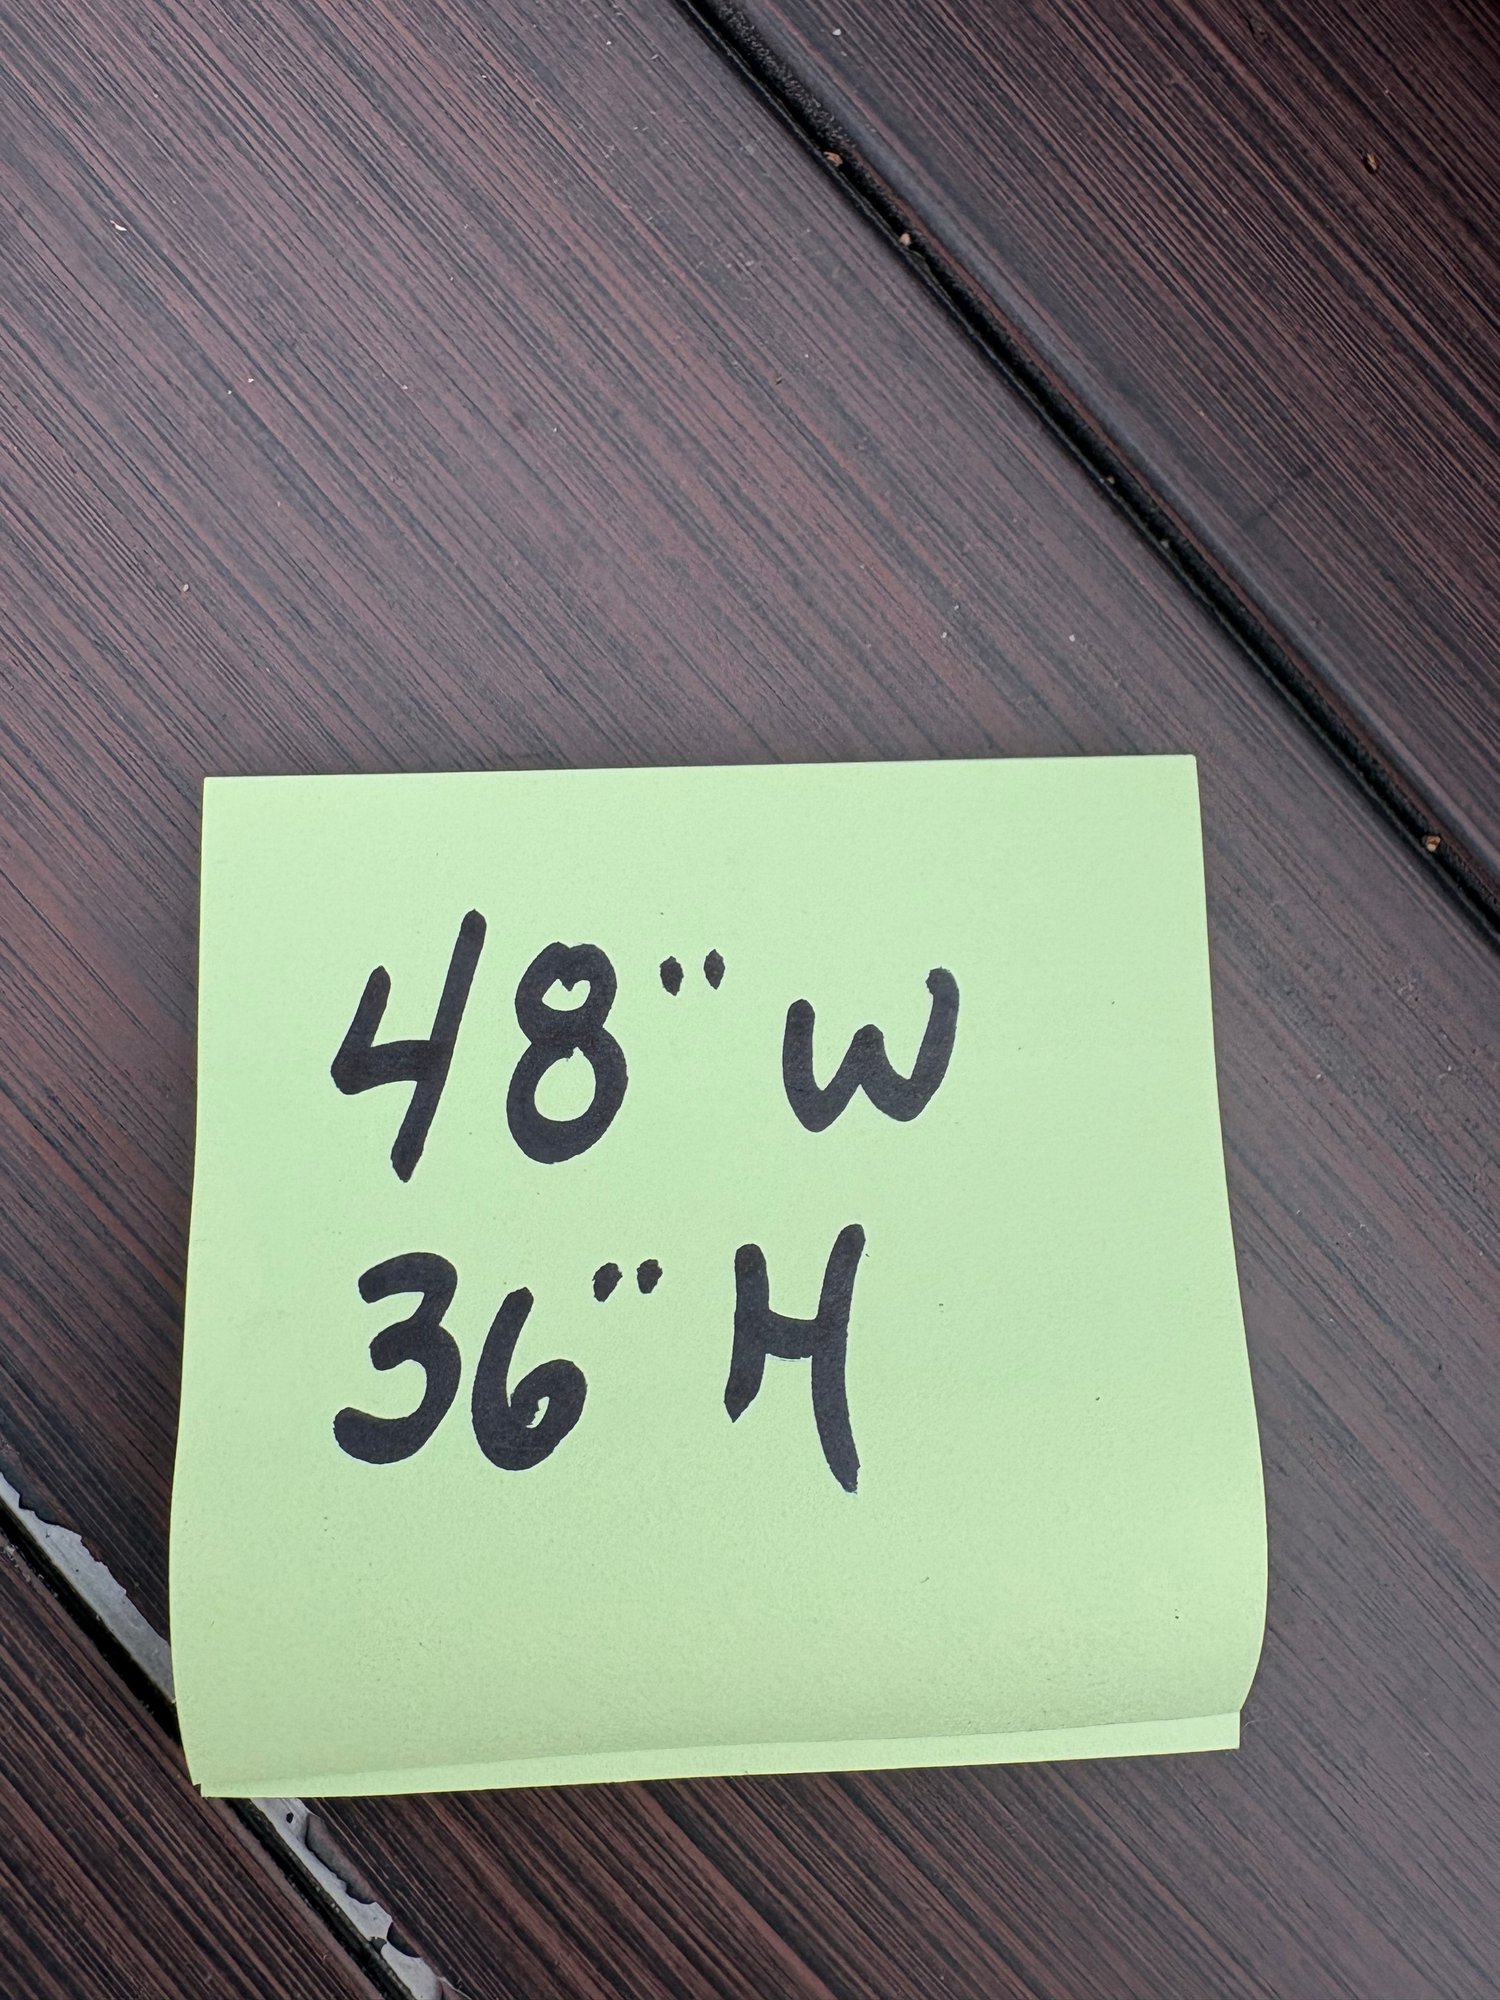 48" W
36" H